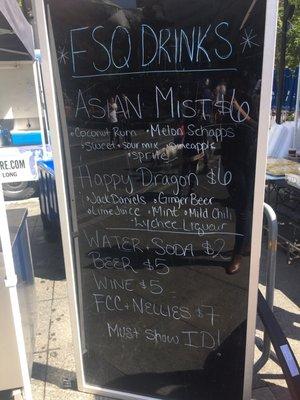 *FSQ DRINKS*
ASIAN MIST $6
•Coconut Rum •Melon Schapps
•Sweet + Sour mix •Pineapple
•Sprite
Happy Dragon $6
•Jack Daniels •Ginger Beer
•Lime Juice •Mint •Mild Chili
•Lychee Liqueur
WATER + SODA $2
BEER $5
WINE $5
FCC + NELLIES $7
MUST SHOW ID!
LONG